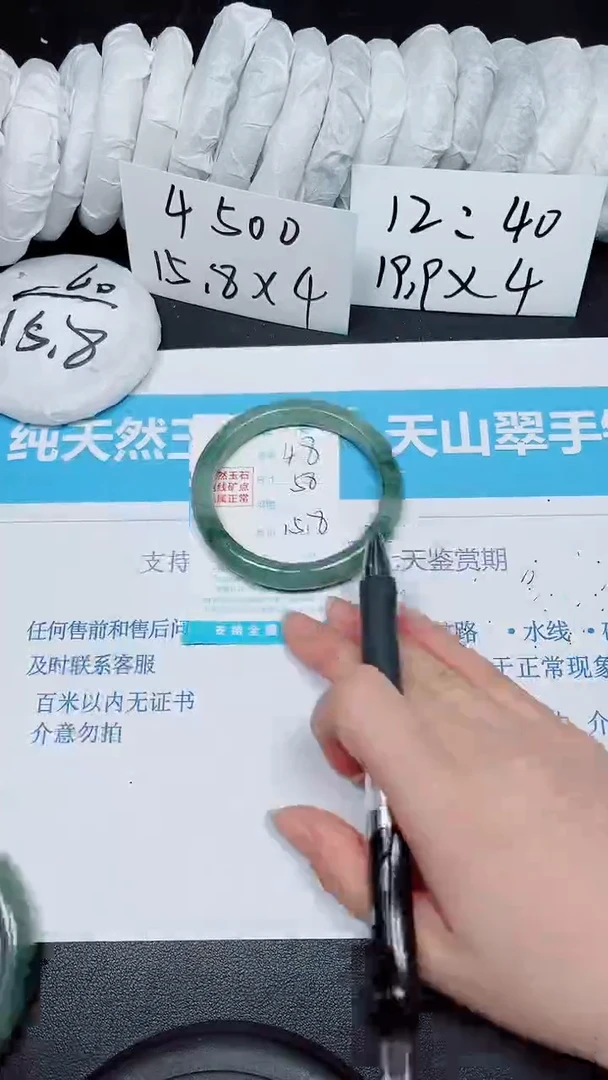 4500
15.8×4
12:40
19.9×4
40
15.8
纯天然玉
天山翠手
48
58
15.8
然玉石
线矿点
属正常
支持
天鉴赏期
任何售前和售后问
及时联系客服
百米以内无证书
介意勿拍
·水线
于正常现象
介